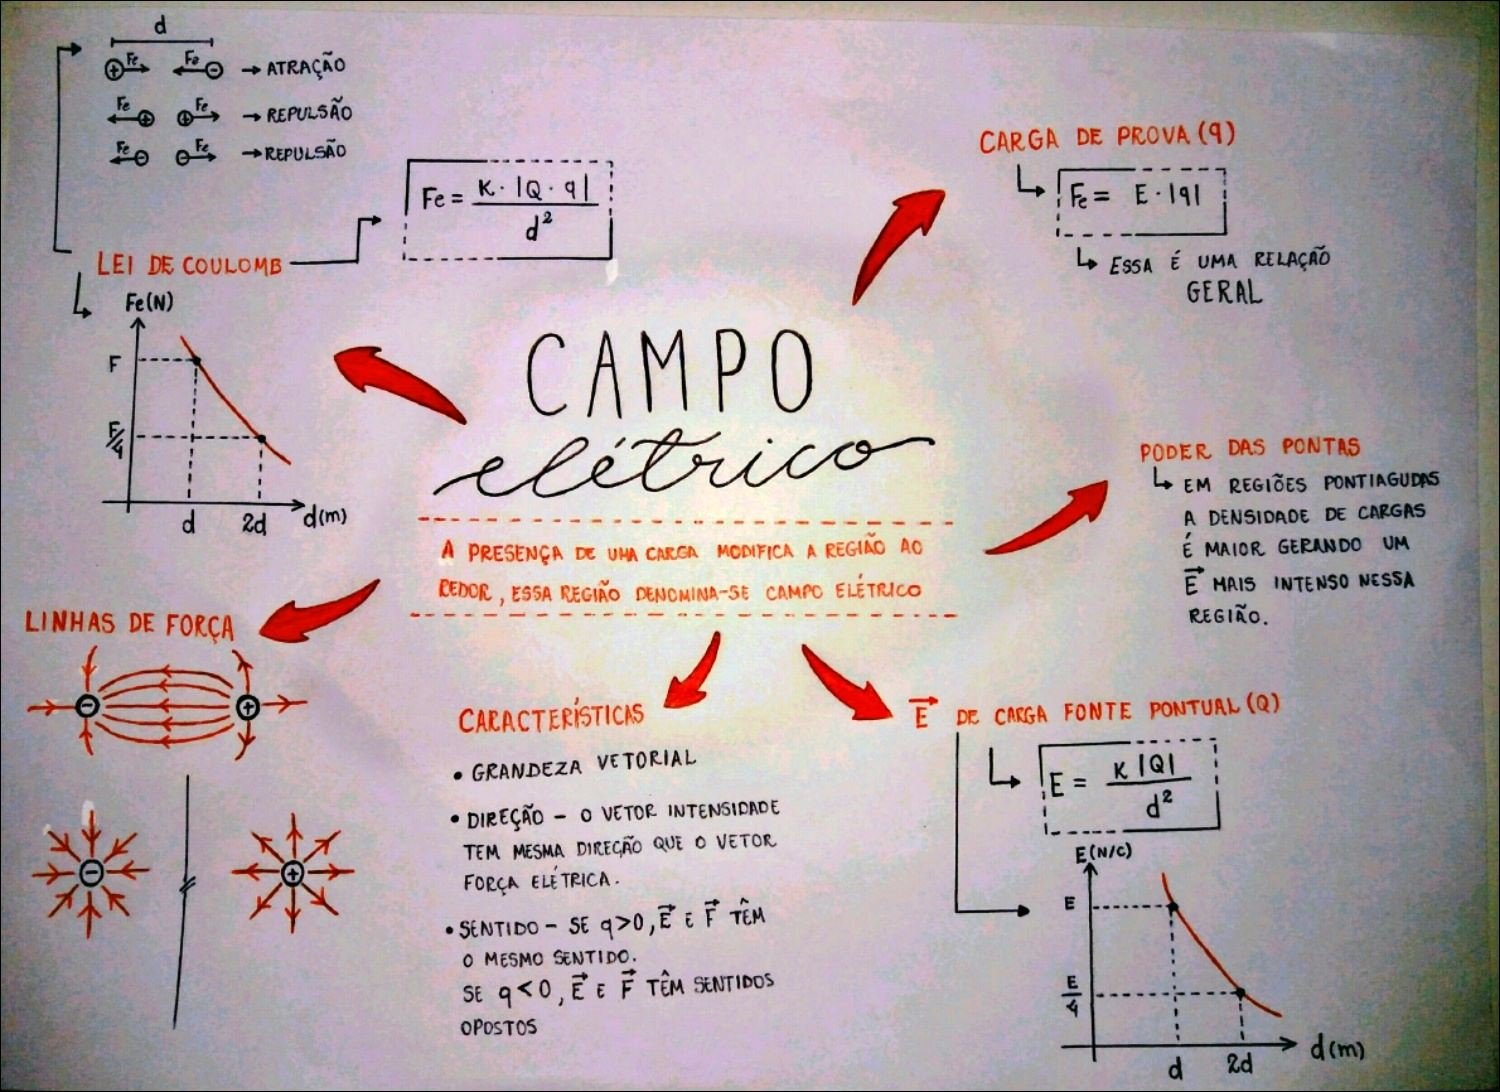 d
Fe Fe → ATRAÇÃO
Fe Fe → REPULSÃO
Fe Fe → REPULSÃO
Fe = K · |Q · q| / d²
LEI DE COULOMB
Fe(N)
F
F/4
d 2d d(m)
CARGA DE PROVA (q)
Fe = E · |q|
ESSA É UMA RELAÇÃO
GERAL
CAMPO
elétrico
A PRESENÇA DE UMA CARGA MODIFICA A REGIÃO AO
REDOR, ESSA REGIÃO DENOMINA-SE CAMPO ELÉTRICO
PODER DAS PONTAS
EM REGIÕES PONTIAGUDAS
A DENSIDADE DE CARGAS
É MAIOR GERANDO UM
E⃗ MAIS INTENSO NESSA
REGIÃO.
LINHAS DE FORÇA
- +
- +
CARACTERÍSTICAS
• GRANDEZA VETORIAL
• DIREÇÃO - O VETOR INTENSIDADE
TEM MESMA DIREÇÃO QUE O VETOR
FORÇA ELÉTRICA.
• SENTIDO - SE q>0, E⃗ E F⃗ TÊM
O MESMO SENTIDO.
SE q<0, E⃗ E F⃗ TÊM SENTIDOS
OPOSTOS
E⃗ DE CARGA FONTE PONTUAL (Q)
E = K |Q| / d²
E(N/C)
E
E/4
d 2d d(m)